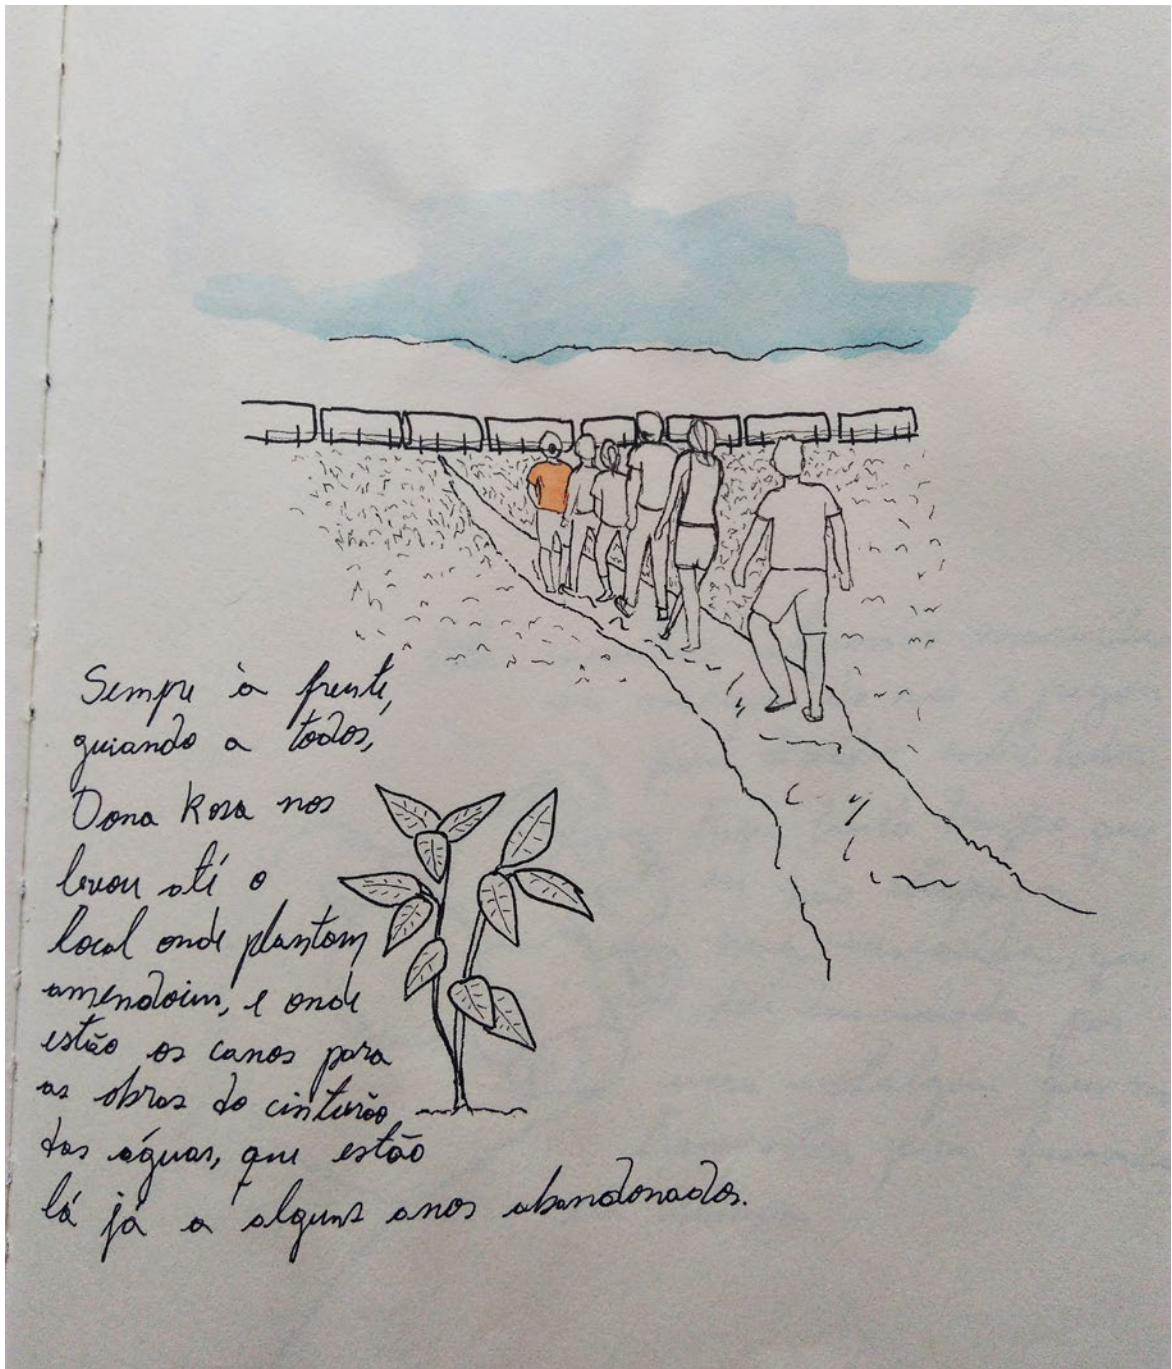 Sempre à frente,
guiando a todos,
Dona Rosa nos
levou até o
local onde plantam
amendoim, e onde
estão os canos para
as obras do cinturão
das águas, que estão
lá já a alguns anos abandonados.